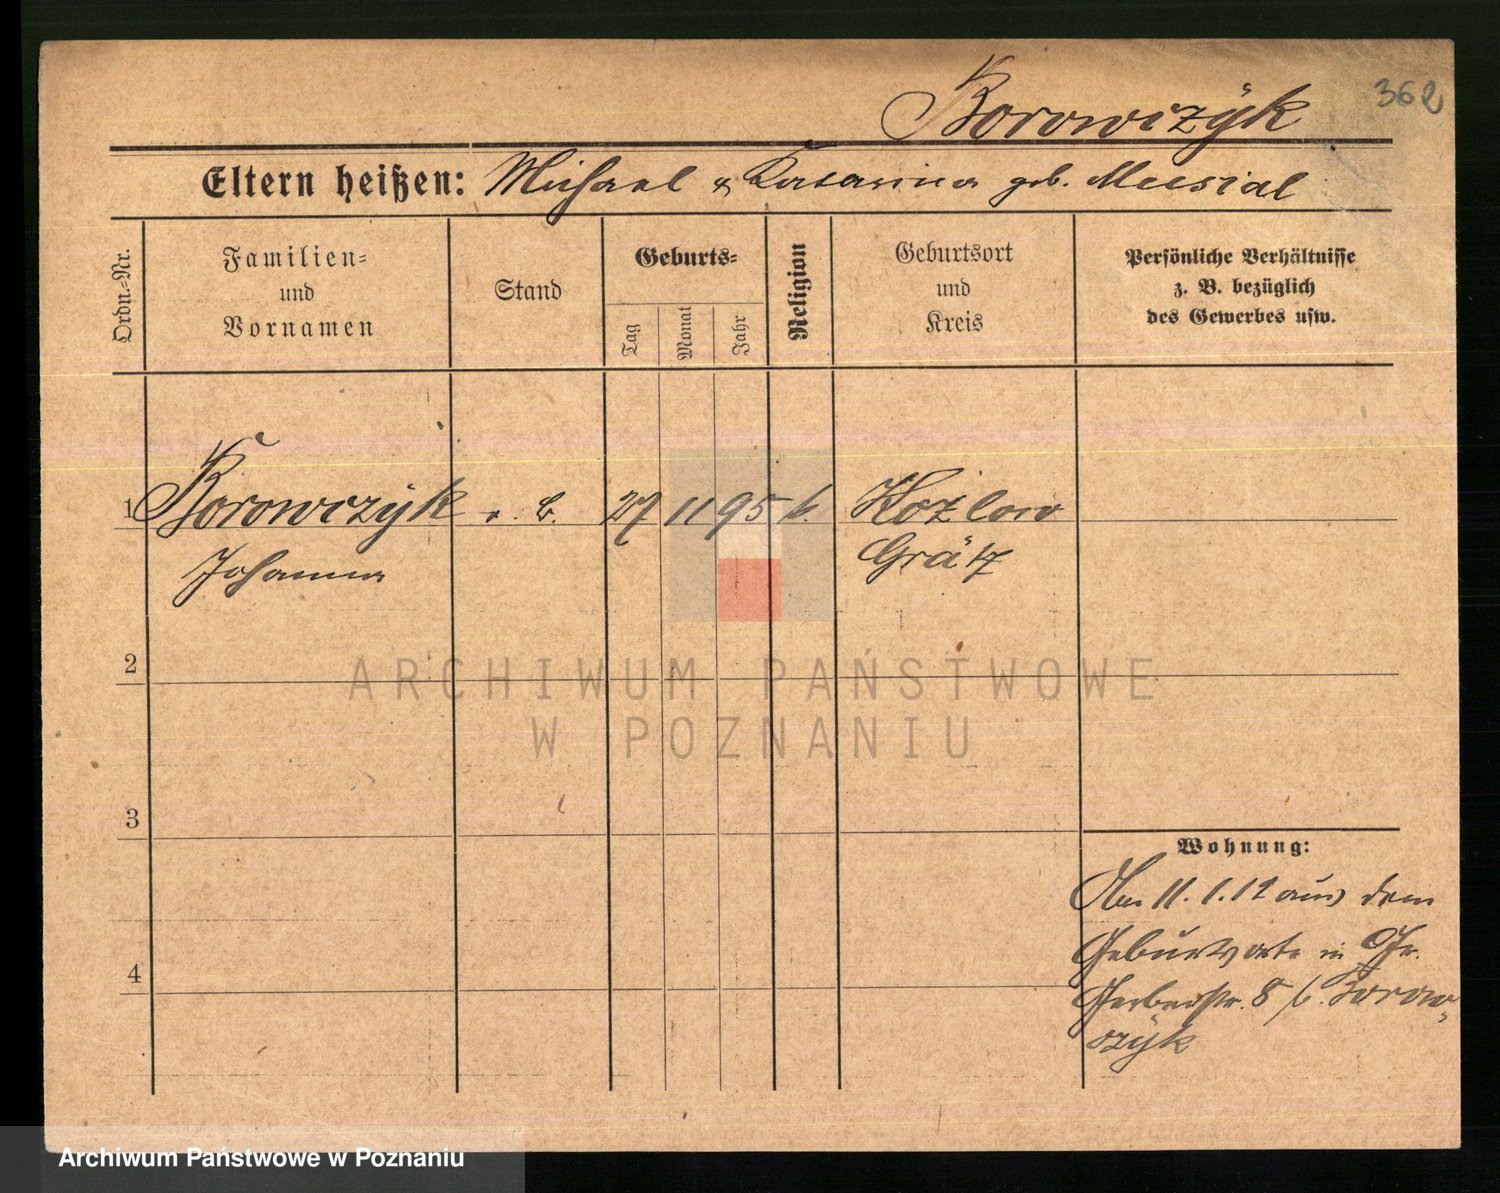 362
Borowczÿk
Eltern heißen: Michael & Katarina geb. Musial
Ordn.-Nr.
Familien-
und
Vornamen
Stand
Geburts-
Tag
Monat
Jahr
Religion
Geburtsort
und
Kreis
Persönliche Verhältnisse
z. B. bezüglich
des Gewerbes usw.
1 Borowczÿk o. B. 27 11 95 k. Kozlowo
Johanna Grätz
ARCHIWUM PAŃSTWOWE
W POZNANIU
2
3
4
Wohnung:
Am 11.1.12 aus dem
Geburtsorte in Gr.
Gerberstr. 8 b. Borow-
czÿk
Archiwum Państwowe w Poznaniu